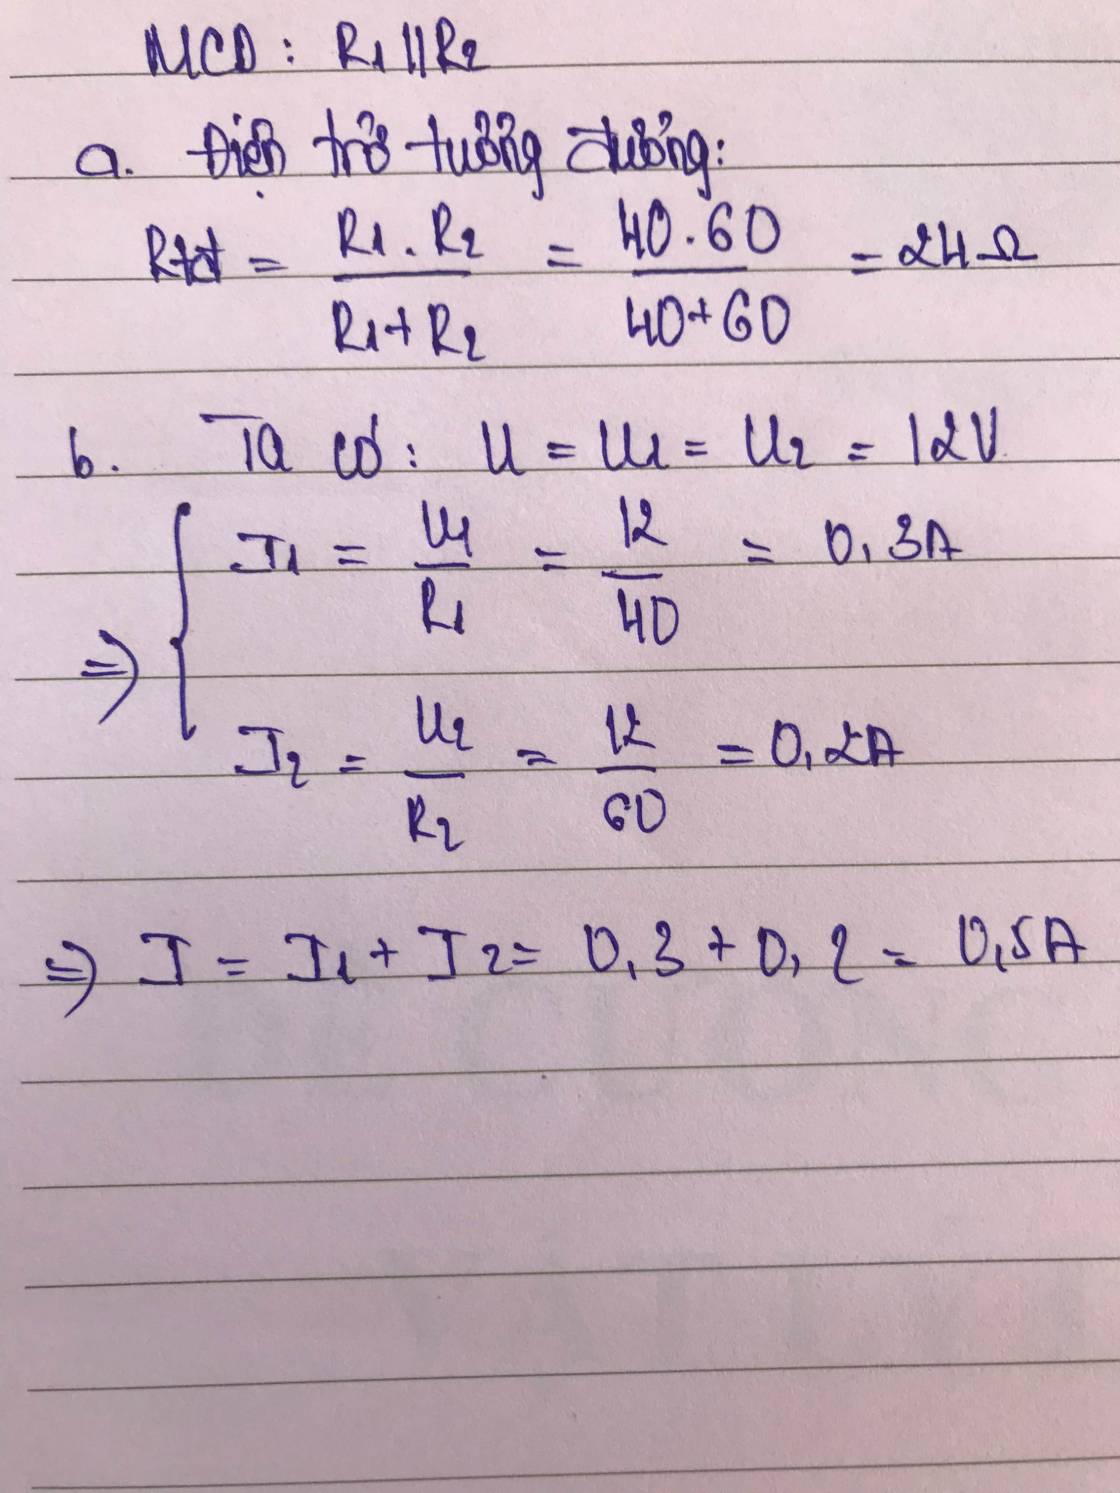 MCD: R1 // R2
a. Điện trở tương đương:
Rtđ = R1 . R2 / R1 + R2 = 40 . 60 / 40 + 60 = 24 Ω
b. Ta có: U = U1 = U2 = 12V
I1 = U1 / R1 = 12 / 40 = 0,3A
=> {
I2 = U2 / R2 = 12 / 60 = 0,2A
=> I = I1 + I2 = 0,3 + 0,2 = 0,5A